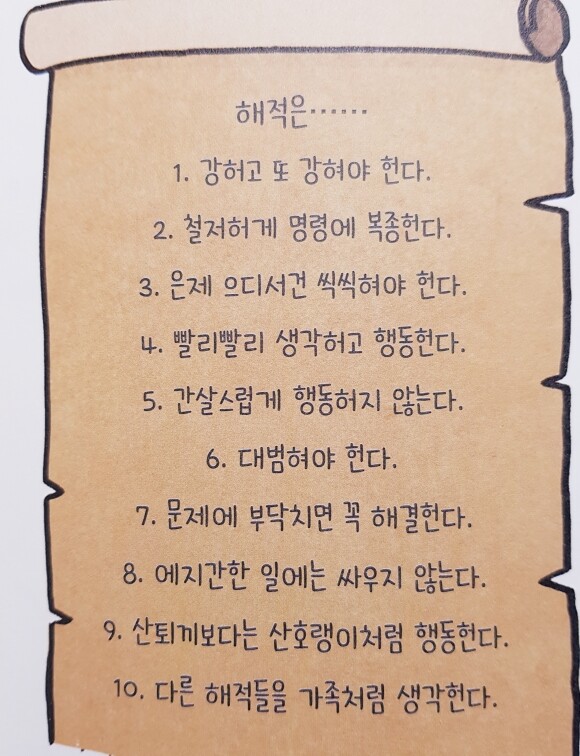 해적은……
1. 강허고 또 강혀야 헌다.
2. 철저허게 명령에 복종헌다.
3. 은제 으디서건 씩씩혀야 헌다.
4. 빨리빨리 생각허고 행동헌다.
5. 간살스럽게 행동허지 않는다.
6. 대범혀야 헌다.
7. 문제에 부닥치면 꼭 해결헌다.
8. 에지간한 일에는 싸우지 않는다.
9. 산퇴끼보다는 산호랭이처럼 행동헌다.
10. 다른 해적들을 가족처럼 생각헌다.